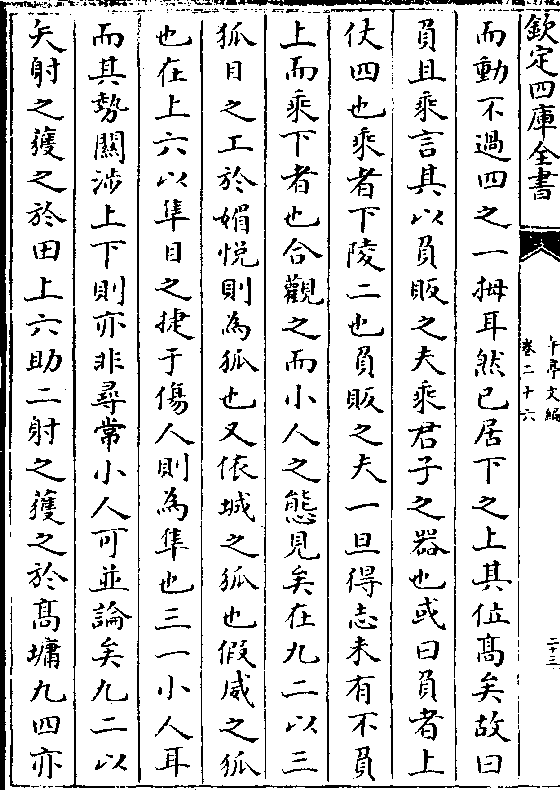 欽定四庫全書
卷二十六
二十三
而動不過四之一拇耳然已居下之上其位髙矣故曰
負且乘言其以負販之夫乘君子之器也或曰負者上
伏四也乘者下陵二也負販之夫一旦得志未有不負
上而乘下者也合觀之而小人之態見矣在九二以三
狐目之工於媚悦則為狐也又依城之狐也假威之狐
也在上六以隼目之捷于傷人則為隼也三一小人耳
而其勢關涉上下則亦非尋常小人可並論矣九二以
矢射之獲之於田上六助二射之獲之於髙墉九四亦